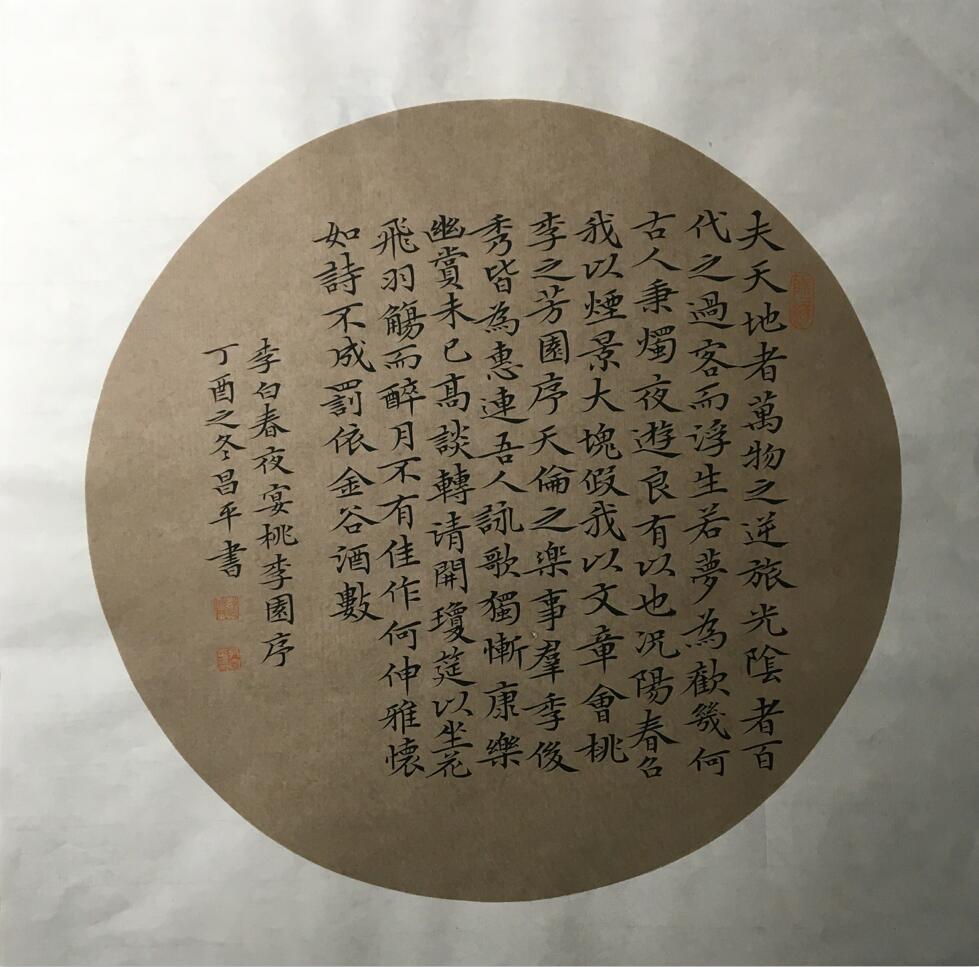 夫天地者萬物之逆旅光陰者百
代之過客而浮生若夢為歡幾何
古人秉燭夜遊良有以也況陽春召
我以煙景大塊假我以文章會桃
李之芳園序天倫之樂事羣季俊
秀皆為惠連吾人詠歌獨慚康樂
幽賞未已高談轉请開瓊筵以坐花
飛羽觴而醉月不有佳作何伸雅懷
如詩不成罰依金谷酒數
李白春夜宴桃李園序
丁酉之冬昌平書